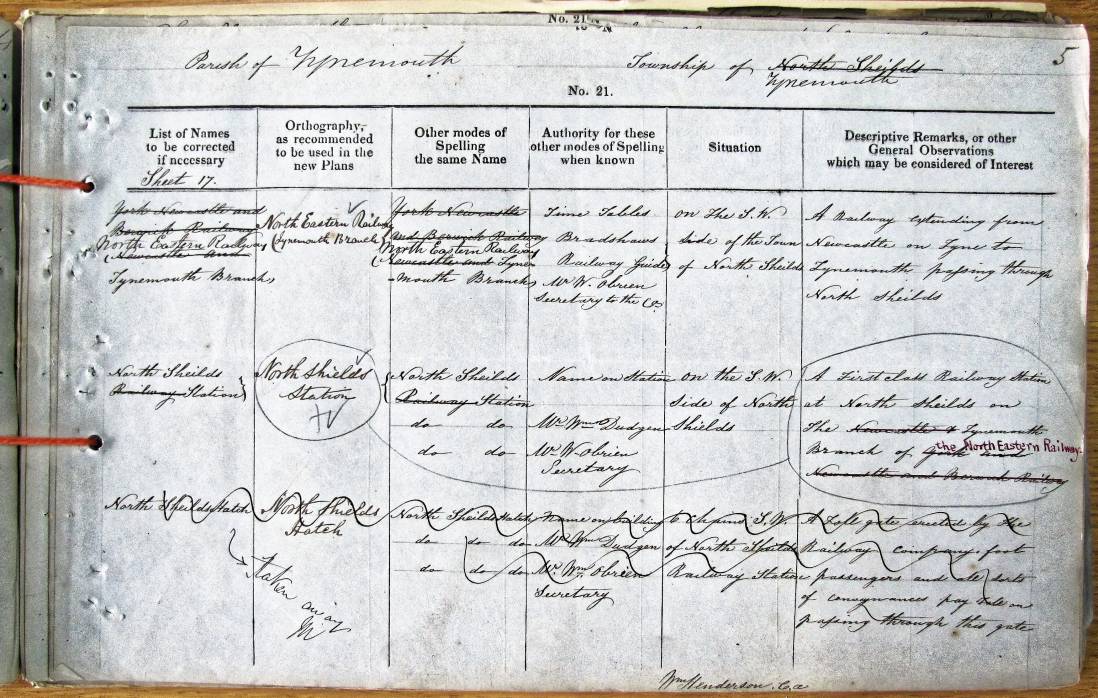 No. 21
Parish of Tynemouth
Township of North Sheilds
Tynemouth
5
No. 21.
List of Names to be corrected if necessary
Sheet 17.
Orthography, as recommended to be used in the new Plans
Other modes of Spelling the same Name
Authority for these other modes of Spelling when known
Situation
Descriptive Remarks, or other General Observations which may be considered of Interest
York Newcastle and
Berwick Railway
North Eastern Railway
(Newcastle and
Tynemouth Branch)
North Eastern Railway
(Tynemouth Branch)
York Newcastle
and Berwick Railway
North Eastern Railway
(Newcastle and Tyne-
-mouth Branch)
Time Tables
Bradshaws
Railway Guide
Mr W. Obrien
Secretary to the Co.
on The S.W.
Side of the Town
of North Sheilds
A Railway extending from
Newcastle on Tyne to
Tynemouth passing through
North Sheilds
North Sheilds
Railway Station
North Shields
Station
North Sheilds
Railway Station
do do
do do
Name on Station
Mr Wm Dudgen
Mr W Obrien
Secretary
on the S.W.
Side of North
Shields
A First class Railway Station
at North Sheilds on
The Newcastle & Tynemouth
Branch of York and
the North Eastern Railway.
Newcastle and Berwick Railway
North Sheilds Hatch
North Shields
Hatch
North Sheilds Hatch
do do do
do do do
Name on building
Mr Wm Dudgen
Mr. Wm. Obrien
Secretary
S.W.
of North Sheilds
Railway Station
A Toll gate erected by the
Railway Company. foot
passengers and all sorts
of conveyances pay Tole on
passing through this gate
Taken away
Wm Henderson. C.a